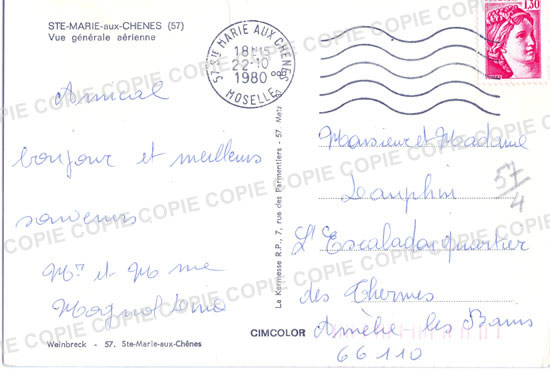 STE-MARIE-aux-CHENES (57)
Vue générale aérienne
Amical
bonjour et meilleurs
souvenirs
Mr et Mme
57 STE MARIE AUX CHENES
18H15
22-10
1980
MOSELLE
1,30
Monsieur et Madame
Dauphin
L'Escalada quartier
des Thermes
Amélie les Bains
66110
57
4
La Kermesse R.P., 7, rue des Parmentiers - 57 Metz
CIMCOLOR
Weinbreck - 57. Ste-Marie-aux-Chênes
COPIE COPIE COPIE COPIE